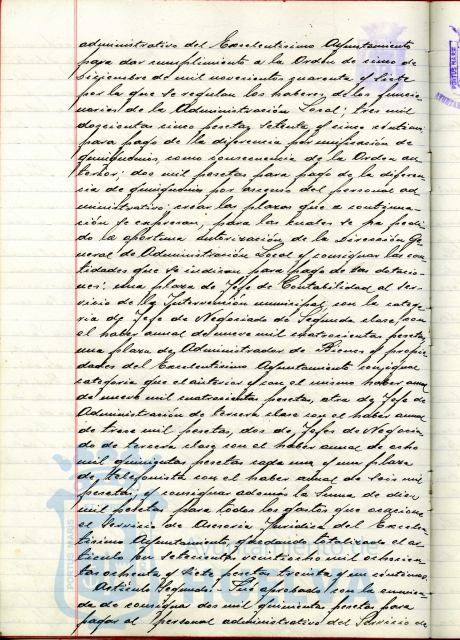 administrativo del Excelentísimo Ayuntamiento
para dar cumplimiento a la Orden de cinco de
Diciembre de mil novecientos cuarenta y siete
por la que se regulan los haberes de los funcio-
narios de la Administración Local; tres mil
doscientas cinco pesetas setenta y cinco céntimos
para pago de la diferencia por unificación de
quinquenios, como consecuencia de la Orden an-
terior; dos mil pesetas para pago de la diferen-
cia de quinquenios por ascenso del personal ad-
ministrativo; crear las plazas que a continua-
ción se expresan, para las cuales se ha pedi-
do la oportuna autorización de la Dirección Ge-
neral de Administración Local y consignar las can-
tidades que se indican para pago de sus dotacio-
nes: una plaza de Jefe de Contabilidad al ser-
vicio de la Intervención municipal, con la catego-
ría de Jefe de Negociado de Segunda clase, con
el haber anual de nueve mil cuatrocientas pesetas,
una plaza de Administrador de Bienes y propie-
dades del Excelentísimo Ayuntamiento con igual
categoría que el anterior y con el mismo haber anual
de nueve mil cuatrocientas pesetas, otra de Jefe de
Administración de tercera clase con el haber anual
de trece mil pesetas, dos de Jefes de Negocia-
do de tercera clase con el haber anual de ocho
mil quinientas pesetas cada una y una plaza
de Telefonista con el haber anual de seis mil
pesetas, y consignar además la suma de diez
mil pesetas para todos los gastos que ocasione
el Servicio de Asesoría Jurídica del Excelen-
tísimo Ayuntamiento, quedando totalizado el ar-
tículo por setecientas ochenta ochocien-
tas ochenta y siete pesetas treinta y un céntimos.
Artículo Segundo: Fue aprobado con la enmien-
da de consignar dos mil quinientas pesetas para
pagar al personal administrativo del Servicio de
Ayuntamiento de
HUELVA
PORTUS MARIS